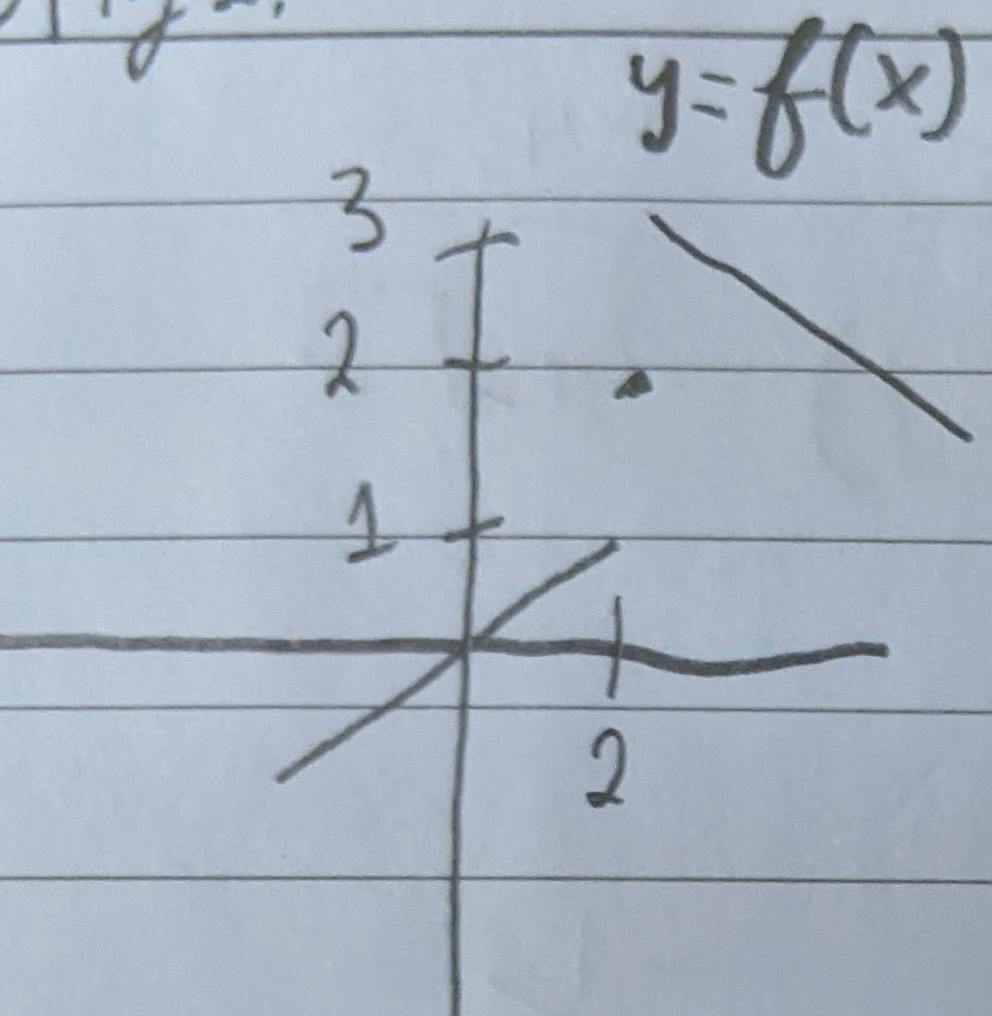 y=f(x)
3
2
1
2